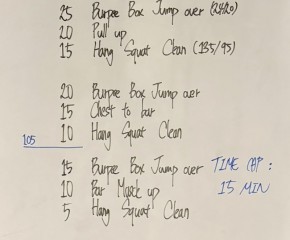 25 Burpee Box Jump over (24/20)
20 Pull up
15 Hang Squat Clean (135/95)
20 Burpee Box Jump over
15 Chest to bar
10 Hang Squat Clean
105
15 Burpee Box Jump over
10 Bar Muscle up
5 Hang Squat Clean
TIME CAP :
15 MIN